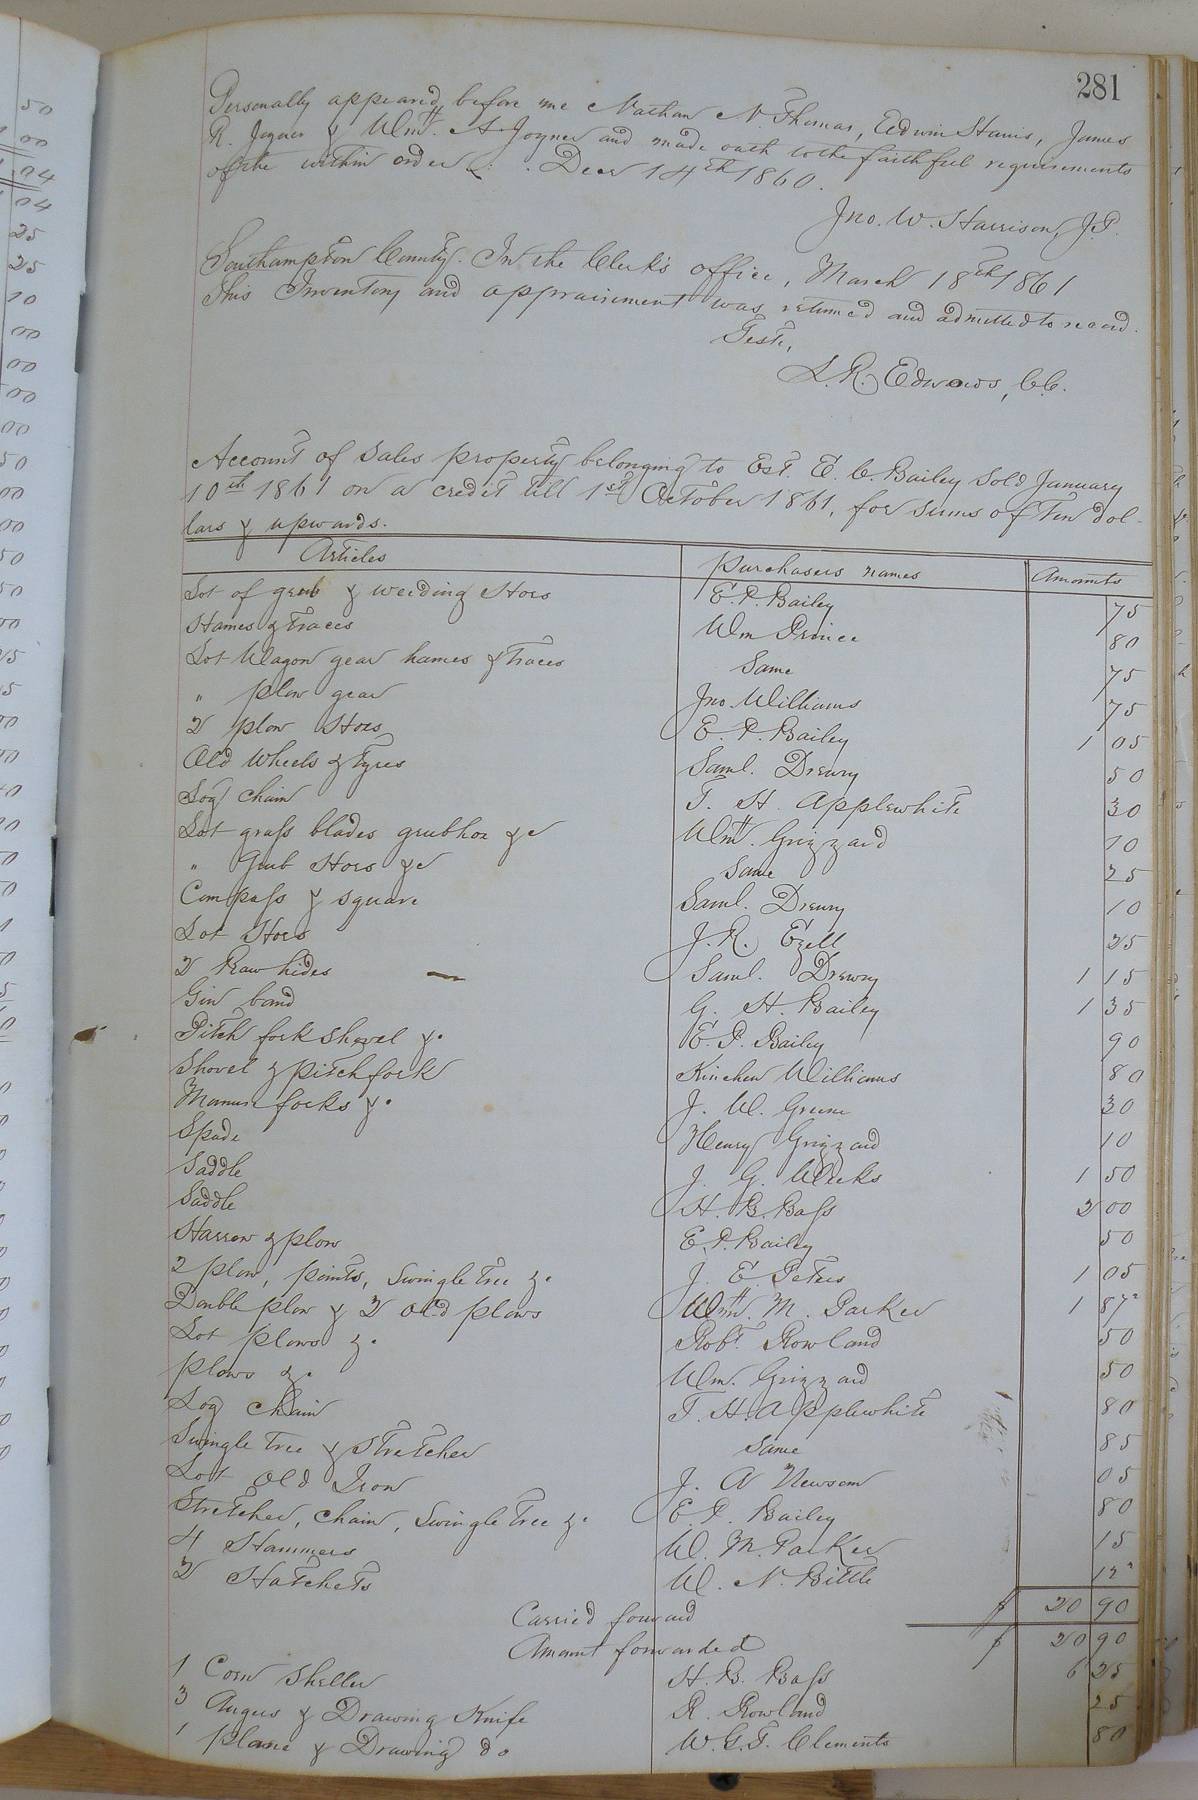 281
Personally appeared before me Nathan N. Thomas, Edwin Harris, James
R. Joyner & Wm. A. Joyner and made oath to the faithful requirements
of the within order. Decr 14th 1860.
Jno. W. Harrison, J.P.
Southampton County. In the Clerk's office, March 18th 1861
This Inventory and appraisement was returned and admitted to record.
Teste,
L. R. Edwards, C.C.
Account of Sales property belonging to Est. E. C. Bailey Sold January
10th 1861 on a credit till 1st October 1861, for sums of Ten dol-
lars & upwards.
Articles Purchasers names Amounts
Lot of grub & weeding Hoes E. P. Bailey 75
Hames & Traces Wm Prince 80
Lot Wagon gear hames & Traces Same 75
" plow gear Jno. Williams 75
2 plow Hoes E. P. Bailey 1 05
Old Wheels & Tyres Saml. Drewry 50
Log chain T. H. Applewhite 30
Lot grass blades grubhoe &c Wm. Grizzard 10
" Grub Hoes &c Same 25
Compass & square Saml. Drewry 10
Lot Hoes J. R. Ezell 25
2 Raw hides Saml. Drewry 1 15
Gin band G. H. Bailey 1 35
Pitch fork shovel &. E. P. Bailey 90
Shovel & pitchfork Kinchen Williams 80
Manure forks &. J. W. Greene 30
Spade Henry Grizzard 10
Saddle J. G. Weeks 1 50
Saddle H. B. Bass 2 00
Harrow & plow E. P. Bailey 50
2 plow, points, Swingle Tree &. J. E. Peters 1 05
Double plow & 2 Old plows Wm. M. Parker 1 87
Lot plows &. Robt. Rowland 50
plows &. Wm. Grizzard 50
Log Chain T. H. Applewhite 80
Swingle Tree & Stretcher Same 85
Lot Old Iron J. A Newsom 05
Stretcher, chain, Swingle Tree &. E. P. Bailey 80
4 Hammers W. M. Parker 15
2 Hatchets W. N. Bittle 12
Carried forward $ 20 90
Amount forwarded $ 20 90
1 Corn Sheller H. B. Bass 6 25
3 Augers & Drawing Knife R. Rowland 25
1 Plane & Drawing do W. G. T. Clements 80